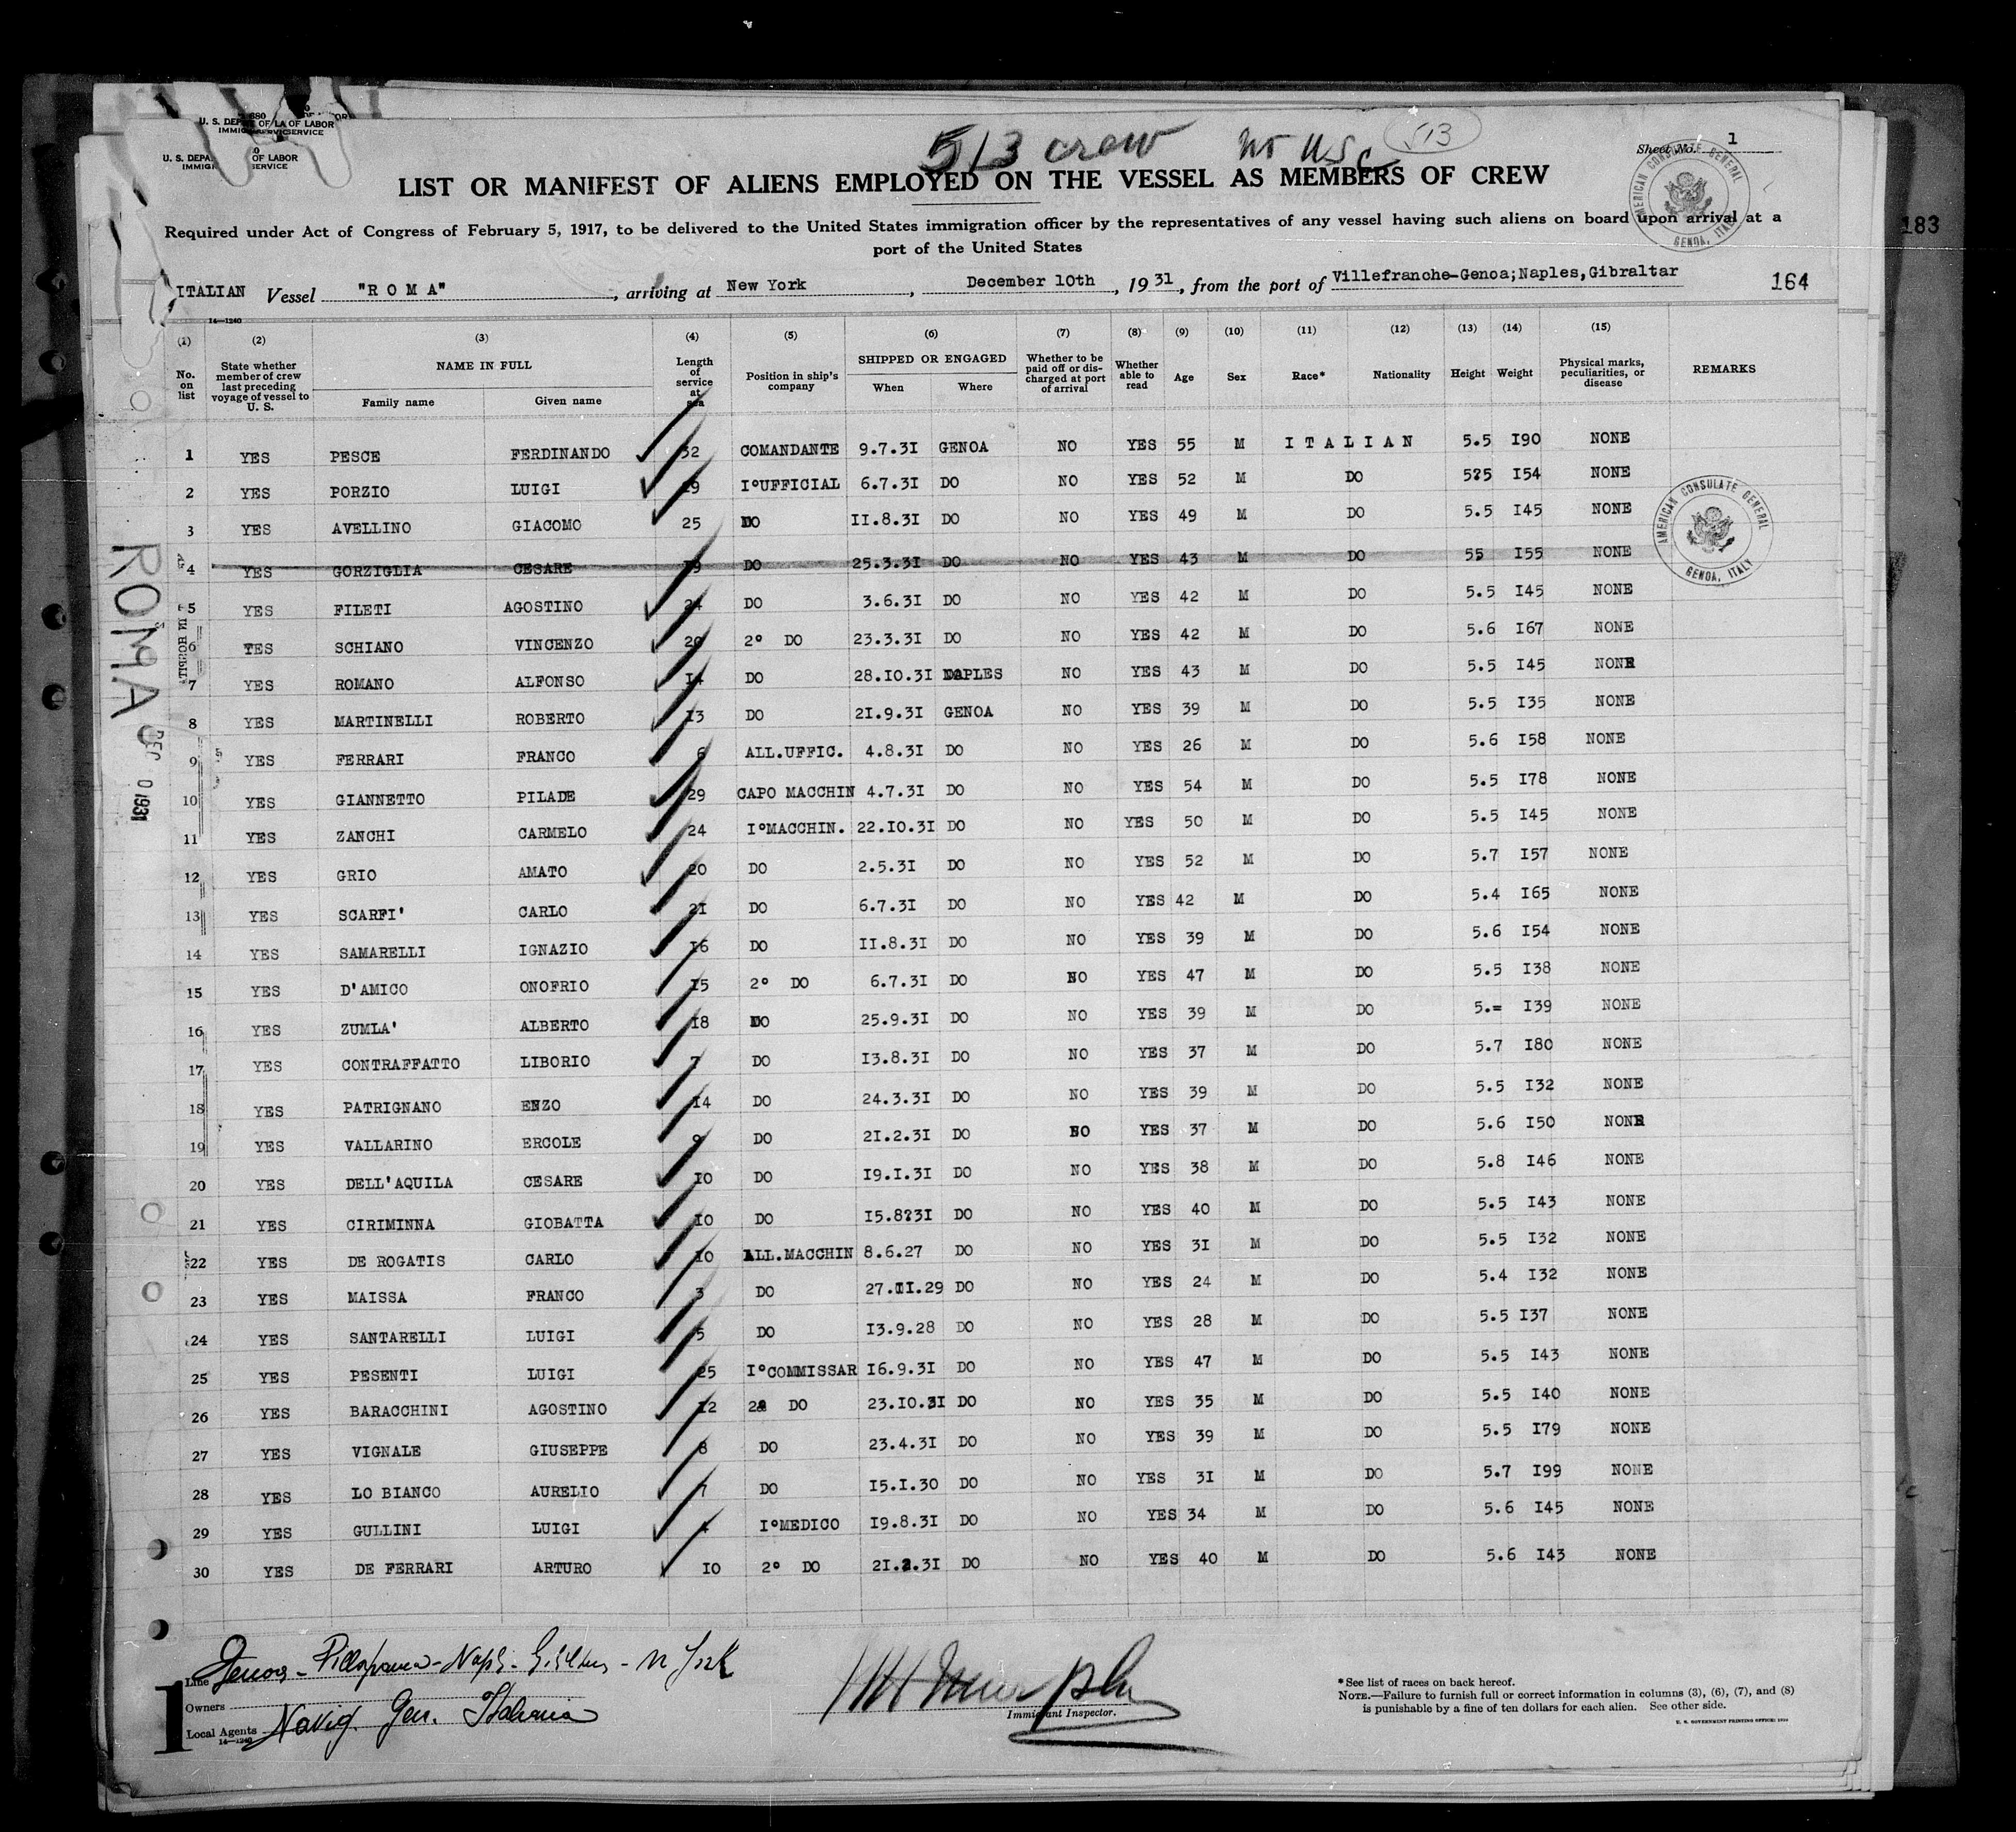 513 crew no USC 513
U. S. DEPARTMENT OF LABOR
IMMIGRATION SERVICE
Sheet No. 1
AMERICAN CONSULATE GENERAL GENOA, ITALY
LIST OR MANIFEST OF ALIENS EMPLOYED ON THE VESSEL AS MEMBERS OF CREW
Required under Act of Congress of February 5, 1917, to be delivered to the United States immigration officer by the representatives of any vessel having such aliens on board upon arrival at a
port of the United States
183
ITALIAN Vessel "R O M A", arriving at New York, December 10th, 1931, from the port of Villefranche-Genoa;Naples,Gibraltar 164
14—1240
(1) (2) (3) (4) (5) (6) (7) (8) (9) (10) (11) (12) (13) (14) (15)
No. on list State whether member of crew last preceding voyage of vessel to U. S. NAME IN FULL Family name Given name Length of service at sea Position in ship's company SHIPPED OR ENGAGED When Where Whether to be paid off or discharged at port of arrival Whether able to read Age Sex Race* Nationality Height Weight Physical marks, peculiarities, or disease REMARKS
1 YES PESCE FERDINANDO 32 COMANDANTE 9.7.3I GENOA NO YES 55 M I T A L I A N 5.5 I90 NONE
2 YES PORZIO LUIGI 29 I°UFFICIAL 6.7.3I DO NO YES 52 M DO 5?5 I54 NONE
3 YES AVELLINO GIACOMO 25 DO II.8.3I DO NO YES 49 M DO 5.5 I45 NONE
4 YES GORZIGLIA CESARE I9 DO 25.3.3I DO NO YES 43 M DO 55 I55 NONE
5 YES FILETI AGOSTINO 24 DO 3.6.3I DO NO YES 42 M DO 5.5 I45 NONE
6 YES SCHIANO VINCENZO 20 2° DO 23.3.3I DO NO YES 42 M DO 5.6 I67 NONE
7 YES ROMANO ALFONSO I4 DO 28.IO.3I NAPLES NO YES 43 M DO 5.5 I45 NONE
8 YES MARTINELLI ROBERTO I3 DO 2I.9.3I GENOA NO YES 39 M DO 5.5 I35 NONE
9 YES FERRARI FRANCO 6 ALL.UFFIC. 4.8.3I DO NO YES 26 M DO 5.6 I58 NONE
10 YES GIANNETTO PILADE 29 CAPO MACCHIN 4.7.3I DO NO YES 54 M DO 5.5 I78 NONE
11 YES ZANCHI CARMELO 24 I°MACCHIN. 22.IO.3I DO NO YES 50 M DO 5.5 I45 NONE
12 YES GRIO AMATO 20 DO 2.5.3I DO NO YES 52 M DO 5.7 I57 NONE
13 YES SCARFI' CARLO 2I DO 6.7.3I DO NO YES 42 M DO 5.4 I65 NONE
14 YES SAMARELLI IGNAZIO I6 DO II.8.3I DO NO YES 39 M DO 5.6 I54 NONE
15 YES D'AMICO ONOFRIO I5 2° DO 6.7.3I DO NO YES 47 M DO 5.5 I38 NONE
16 YES ZUMLA' ALBERTO I8 DO 25.9.3I DO NO YES 39 M DO 5.= I39 NONE
17 YES CONTRAFFATTO LIBORIO 7 DO I3.8.3I DO NO YES 37 M DO 5.7 I80 NONE
18 YES PATRIGNANO ENZO I4 DO 24.3.3I DO NO YES 39 M DO 5.5 I32 NONE
19 YES VALLARINO ERCOLE 9 DO 2I.2.3I DO NO YES 37 M DO 5.6 I50 NONE
20 YES DELL'AQUILA CESARE IO DO I9.I.3I DO NO YES 38 M DO 5.8 I46 NONE
21 YES CIRIMINNA GIOBATTA IO DO I5.8?3I DO NO YES 40 M DO 5.5 I43 NONE
22 YES DE ROGATIS CARLO IO ALL.MACCHIN 8.6.27 DO NO YES 3I M DO 5.5 I32 NONE
23 YES MAISSA FRANCO 3 DO 27.II.29 DO NO YES 24 M DO 5.4 I32 NONE
24 YES SANTARELLI LUIGI 5 DO I3.9.28 DO NO YES 28 M DO 5.5 I37 NONE
25 YES PESENTI LUIGI 25 I°COMMISSAR I6.9.3I DO NO YES 47 M DO 5.5 I43 NONE
26 YES BARACCHINI AGOSTINO I2 2° DO 23.IO.3I DO NO YES 35 M DO 5.5 I40 NONE
27 YES VIGNALE GIUSEPPE 8 DO 23.4.3I DO NO YES 39 M DO 5.5 I79 NONE
28 YES LO BIANCO AURELIO 7 DO I5.I.30 DO NO YES 3I M DO 5.7 I99 NONE
29 YES GULLINI LUIGI 4 I°MEDICO I9.8.3I DO NO YES 34 M DO 5.6 I45 NONE
30 YES DE FERRARI ARTURO IO 2° DO 2I.2.3I DO NO YES 40 M DO 5.6 I43 NONE
AMERICAN CONSULATE GENERAL GENOA, ITALY
ROMA
DEC 0 1931
Line Genova - Villafranca - Nap - Gibilter - N York
Owners
Local Agents Navig. Gen. Italiana
14—1240
1
Murphy
Immigrant Inspector.
*See list of races on back hereof.
NOTE.—Failure to furnish full or correct information in columns (3), (6), (7), and (8)
is punishable by a fine of ten dollars for each alien. See other side.
U. S. GOVERNMENT PRINTING OFFICE: 1930